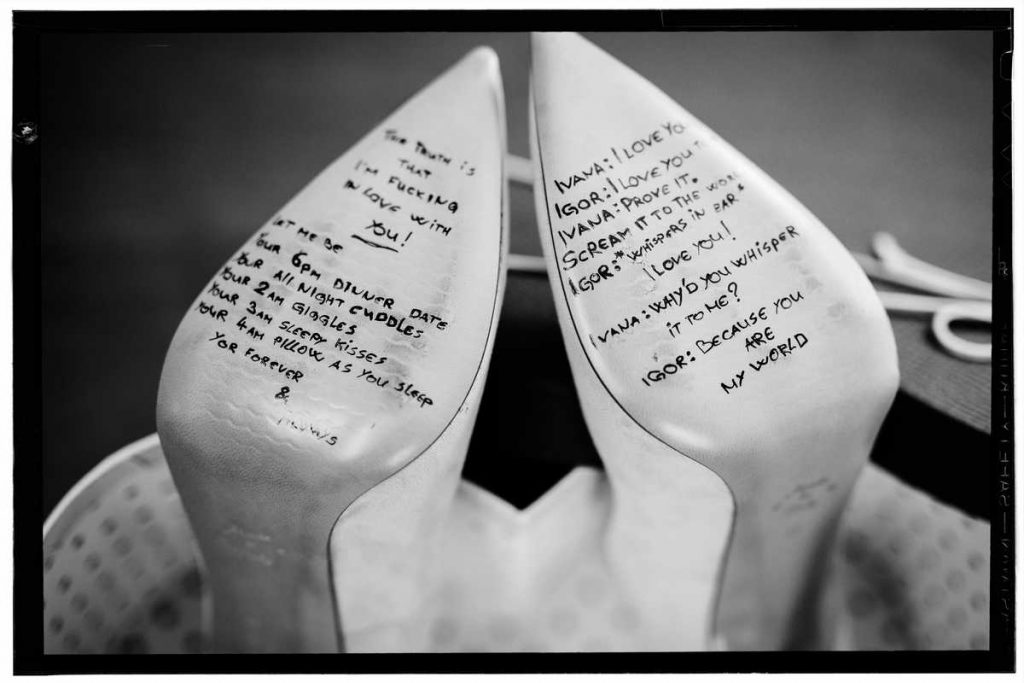 THE TRUTH IS
THAT
I'M FUCKING
IN LOVE WITH
YOU!
LET ME BE
YOUR 6PM DINNER DATE
YOUR All NIGHT CUDDLES
YOUR 2AM GIGGLES
YOUR 3AM SLEEPY KISSES
YOUR 4AM PILLOW AS YOU SLEEP
YOR FOREVER
&
IVANA: I LOVE YOU
IGOR: I LOVE YOU
IVANA: PROVE IT.
SCREAM IT TO THE
IGOR: *WHISPERS IN EAR*
I LOVE YOU!
IVANA: WHY'D YOU WHISPER
IT TO ME?
IGOR: BECAUSE YOU
ARE
MY WORLD